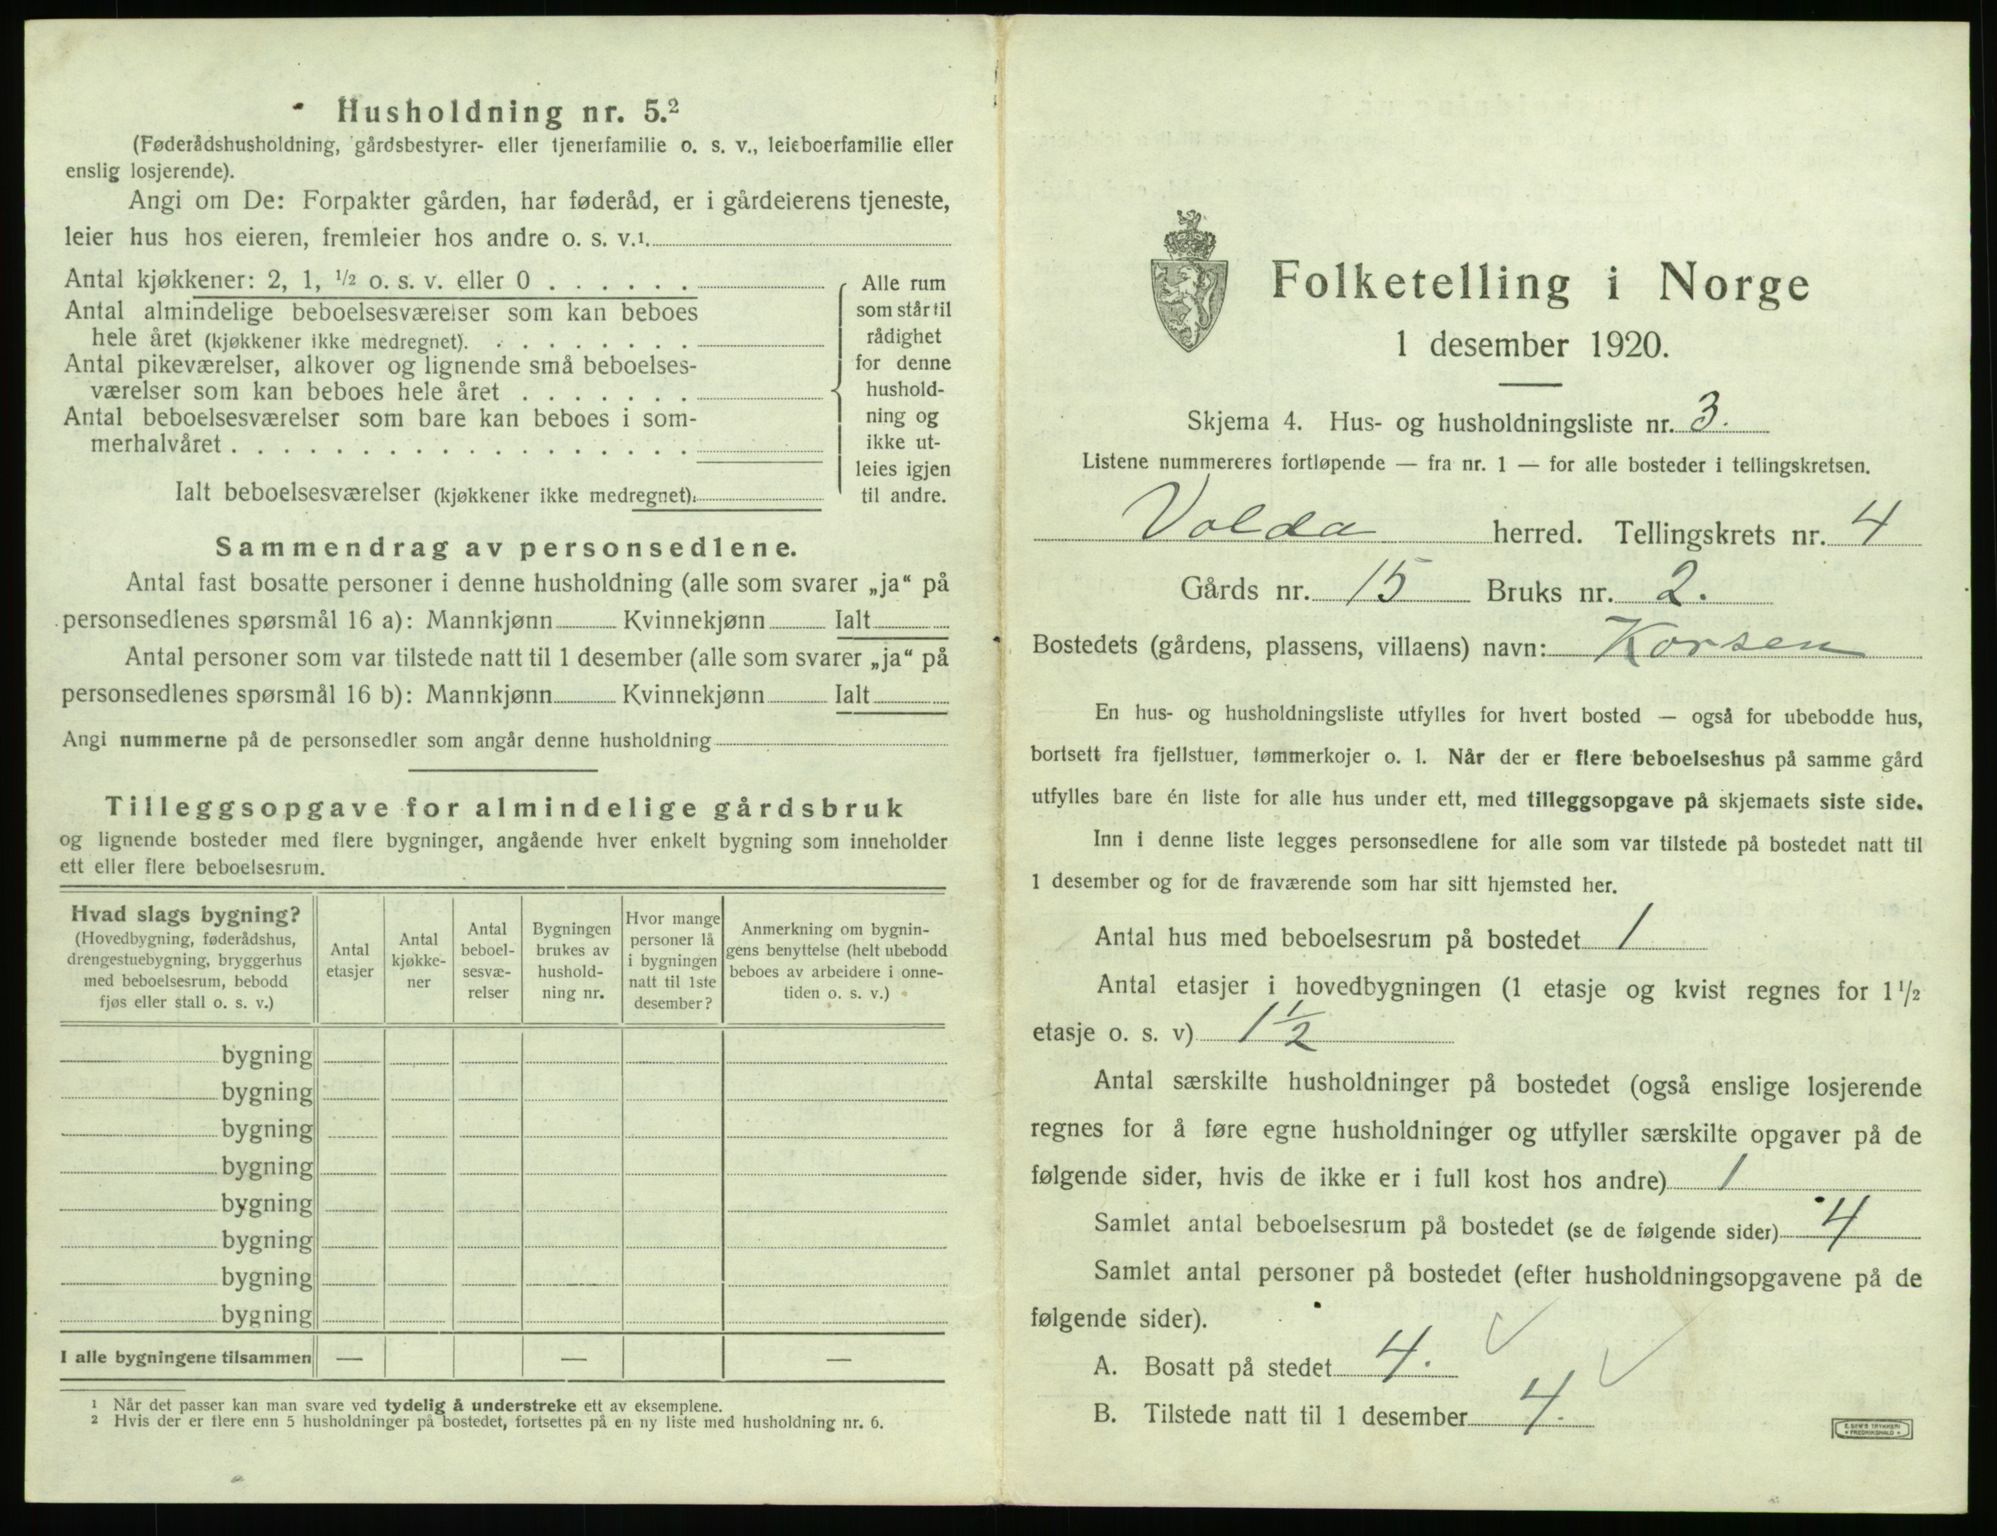 Husholdning nr. 5.²
(Føderådshusholdning, gårdsbestyrer- eller tjenerfamilie o. s. v., leieboerfamilie eller
enslig losjerende).
Angi om De: Forpakter gården, har føderåd, er i gårdeierens tjeneste,
leier hus hos eieren, fremleier hos andre o. s. v.¹
Antal kjøkkener: 2, 1, 1/2 o. s. v. eller 0 . . . . . .
Antal almindelige beboelsesværelser som kan beboes
hele året (kjøkkener ikke medregnet). . . . . . . . .
Antal pikeværelser, alkover og lignende små beboelses-
værelser som kan beboes hele året . . . . . . .
Antal beboelsesværelser som bare kan beboes i som-
merhalvåret . . . . . . . . . . . . . . . . . .
Ialt beboelsesværelser (kjøkkener ikke medregnet).
Alle rum
som står til
rådighet
for denne
hushold-
ning og
ikke ut-
leies igjen
til andre.
Sammendrag av personsedlene.
Antal fast bosatte personer i denne husholdning (alle som svarer „ja“ på
personsedlenes spørsmål 16 a): Mannkjønn Kvinnekjønn Ialt
Antal personer som var tilstede natt til 1 desember (alle som svarer „ja“ på
personsedlenes spørsmål 16 b): Mannkjønn Kvinnekjønn Ialt
Angi nummerne på de personsedler som angår denne husholdning
Tilleggsopgave for almindelige gårdsbruk
og lignende bosteder med flere bygninger, angående hver enkelt bygning som inneholder
ett eller flere beboelsesrum.
Hvad slags bygning?
(Hovedbygning, føderådshus,
drengestuebygning, bryggerhus
med beboelsesrum, bebodd
fjøs eller stall o. s. v.)
Antal
etasjer
Antal
kjøkke-
ner
Antal
beboel-
sesvæ-
relser
Bygningen
brukes av
hushold-
ning nr.
Hvor mange
personer lå
i bygningen
natt til 1ste
desember?
Anmerkning om bygnin-
gens benyttelse (helt ubebodd
beboes av arbeidere i onne-
tiden o. s. v.)
bygning
bygning
bygning
bygning
bygning
bygning
bygning
bygning
I alle bygningene tilsammen — — —
¹ Når det passer kan man svare ved tydelig å understreke ett av eksemplene.
² Hvis der er flere enn 5 husholdninger på bostedet, fortsettes på en ny liste med husholdning nr. 6.
Folketelling i Norge
1 desember 1920.
Skjema 4. Hus- og husholdningsliste nr. 3.
Listene nummereres fortløpende — fra nr. 1 — for alle bosteder i tellingskretsen.
Volda herred. Tellingskrets nr. 4
Gårds nr. 15 Bruks nr. 2.
Bostedets (gårdens, plassens, villaens) navn: Korsen
En hus- og husholdningsliste utfylles for hvert bosted — også for ubebodde hus,
bortsett fra fjellstuer, tømmerkojer o. l. Når der er flere beboelseshus på samme gård
utfylles bare én liste for alle hus under ett, med tilleggsopgave på skjemaets siste side.
Inn i denne liste legges personsedlene for alle som var tilstede på bostedet natt til
1 desember og for de fraværende som har sitt hjemsted her.
Antal hus med beboelsesrum på bostedet 1
Antal etasjer i hovedbygningen (1 etasje og kvist regnes for 1 1/2
etasje o. s. v) 1 1/2
Antal særskilte husholdninger på bostedet (også enslige losjerende
regnes for å føre egne husholdninger og utfyller særskilte opgaver på de
følgende sider, hvis de ikke er i full kost hos andre) 1
Samlet antal beboelsesrum på bostedet (se de følgende sider) 4
Samlet antal personer på bostedet (efter husholdningsopgavene på de
følgende sider).
A. Bosatt på stedet 4.
B. Tilstede natt til 1 desember 4.
E. SEM'S TRYKKERI
FREDRIKSHALD